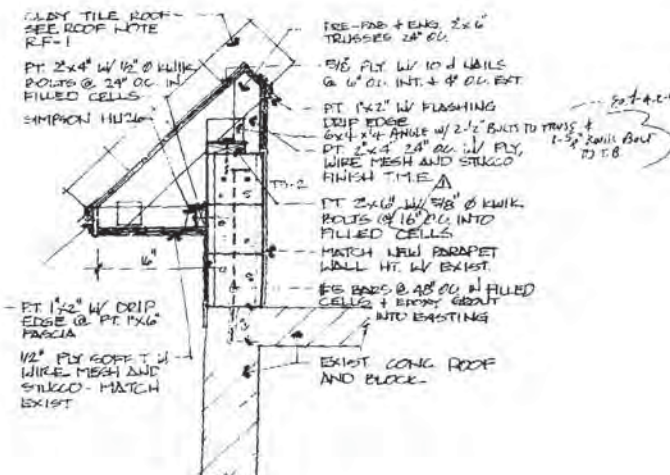 CLAY TILE ROOF-
SEE ROOF NOTE
RF-1
PT. 2"x4" W/ 1/2" Ø KWIK
BOLTS @ 24" O.C. IN
FILLED CELLS
SIMPSON HU26
16"
PT. 1"x2" W/ DRIP
EDGE @ PT. 1"x6"
FASCIA
1/2" PLY SOFFIT W/
WIRE MESH AND
STUCCO - MATCH
EXIST
PRE-FAB + ENG. 2"x6"
TRUSSES 24" O.C.
5/8" PLY W/ 10 d NAILS
@ 6" O.C. INT. + 4" O.C. EXT.
PT 1"x2" W/ FLASHING
DRIP EDGE
6x4x1/4 ANGLE W/ 2-1/2" BOLTS TO TRUSS &
PT. 2"x4" 24" O.C. W/ PLY,
WIRE MESH AND STUCCO
FINISH T.M.E.
TB-2
PT 2"x6" W/ 5/8" Ø KWIK
BOLTS @ 16" O.C. INTO
FILLED CELLS
MATCH NEW PARAPET
WALL HT. W/ EXIST.
#5 BARS @ 48" O.C. IN FILLED
CELLS + EPOXY GROUT
INTO EXISTING
EXIST CONC ROOF
AND BLOCK
Kwik Bolt
TO T.B.